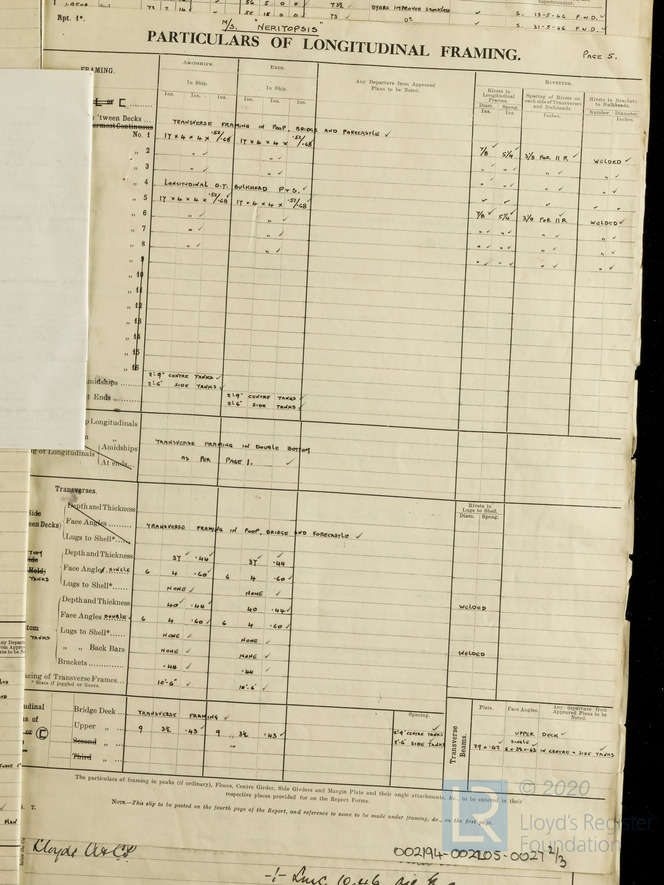 Rpt. 1*.
M/S. "NERITOPSIS"
S. 13-5-46 F.W.D.
S. 31-5-46 F.W.D.
PARTICULARS OF LONGITUDINAL FRAMING.
PAGE 5.
FRAMING.
AMIDSHIPS. ENDS.
Any Departure from Approved Plans to be Noted.
RIVETING.
In Ship. In Ship.
Rivets in Longitudinal Frames.
Spacing of Rivets on each side of Transverses and Bulkheads.
Rivets in Brackets to Bulkheads.
Ins. Ins. Ins. Ins. Ins. Ins.
Diam. Ins. Spcng. Ins. Inches. Number. Diameter Inches.
'tween Decks
TRANSVERSE FRAMING IN POOP, BRIDGE AND FORECASTLE ✓
No. 1 17 x 4 x 4 x .52/.68 17 x 4 x 4 x .52/.68
„ 2 „ ✓ „ ✓ 7/8 ✓ 5 1/4 ✓ WELDED ✓
„ 3 „ ✓ „ ✓ „ ✓ „ ✓
„ 4 LONGITUDINAL O.T. BULKHEAD P & S. ✓
„ 5 17 x 4 x 4 x .52/.68 17 x 4 x 4 x .52/.68
„ 6 „ ✓ „ ✓ 7/8 ✓ 5 1/4 ✓ WELDED ✓
„ 7 „ ✓ „ ✓ „ ✓ „ ✓
„ 8 „ ✓ „ ✓ „ ✓ „ ✓
„ 9
„ 10
„ 11
„ 12
„ 13
„ 14
„ 15
„ 16
Amidships 2'.9" CENTRE TANKS ✓
2'.6" SIDE TANKS ✓
Ends 2'.9" CENTRE TANKS ✓
2'.6" SIDE TANKS ✓
Longitudinals
Amidships TRANSVERSE FRAMING IN DOUBLE BOTTOM
of Longitudinals
At ends AS PER PAGE 1. ✓
Transverses.
Rivets in Lugs to Shell.
Diam. Spcng.
Depth and Thickness
Face Angles TRANSVERSE FRAMING IN POOP, BRIDGE AND FORECASTLE ✓
Lugs to Shell*
Depth and Thickness 37 ✓ .44 ✓ 37 ✓ .44 ✓
Face Angles SINGLE 6 4 .60 ✓ 6 4 .60 ✓
TANKS
Lugs to Shell* NONE ✓ NONE ✓
Depth and Thickness 40 ✓ .44 ✓ 40 .44 ✓ WELDED
Face Angles DOUBLE 6 4 .60 ✓ 6 4 .60 ✓
TANKS
Lugs to Shell* NONE ✓ NONE ✓
„ „ Back Bars NONE ✓ NONE ✓ WELDED
Brackets .44 ✓ .44 ✓
Spacing of Transverse Frames 10'-6" ✓ 10'-6" ✓
* State if joggled or liners.
Bridge Deck TRANSVERSE FRAMING ✓
Spacing.
Upper „ 9 3½ .43 ✓ 9 3½ .43 ✓
2'.9" CENTRE TANKS
2'.6" SIDE TANKS
Second „
Third „
Transverse Beams.
Plate. Face Angles. Any departure from Approved Plans to be Noted.
UPPER DECK ✓
SINGLE
IN CENTRE & SIDE TANKS
The particulars of framing in peaks (if ordinary), Floors, Centre Girder, Side Girders and Margin Plate and their angle attachments, &c., to be entered in their respective places provided for on the Report Forms.
NOTE.—This slip to be posted on the fourth page of the Report, and reference to same to be made under framing, &c., on the first page.
© 2020
LR
Lloyd's Register
Foundation
002194-002205-0027 2/3